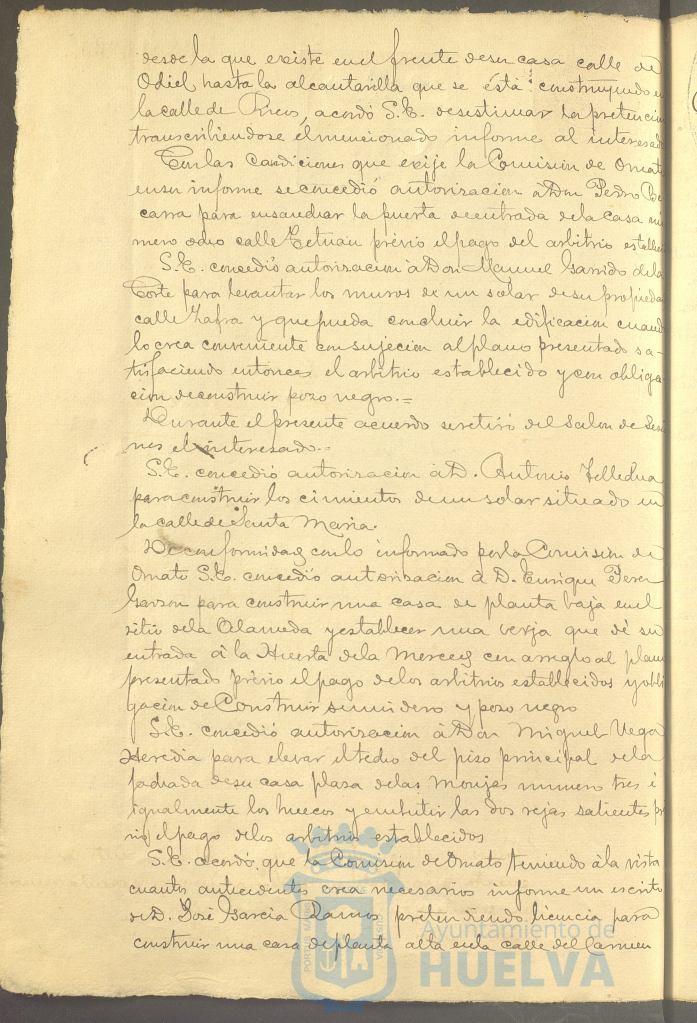 desde la que existe en el frente de su casa calle de
Odiel hasta la alcantarilla que se está construyendo e
la calle de Ricos, acordó S.E. desestimar la pretencion
transcribiendose el mencionado informe al interesado
Con las condiciones que exije la Comision de Ornato
en su informe se concedió autorizacion à Don Pedro Be
carra para ensanchar la puerta de entrada de la casa nú
mero ocho calle Tetuan prévio el pago del arbitrio establec
S.E. concedió autorizacion à Don Manuel Garrido de la
Corte para levantar los muros de un solar de su propieda
calle Zafra y que pueda concluir la edificacion cuand
lo crea conveniente con sujecion al plano presentado sa-
tisfaciendo entonces el arbitrio establecido y con obliga
cion de construir pozo negro.=
Durante el presente acuerdo se retiró del salon de Sesio
nes el interesado.-
S.E. concedió autorizacion à D. Antonio
para construir los cimientos de un solar situado en
la calle de Santa Maria.
De conformidad con lo informado por la Comision de
Ornato S.E. concedió autorizacion à D. Enrique Perez
Garzon para construir una casa de planta baja en el
sitio de la Alameda y establecer una verja que dé su
entrada à la Huerta de la Merced con arreglo al plano
presentado prévio el pago de los arbitrios establecidos y obli
gacion de construir sumidero y pozo negro
S.E. concedió autorizacion à Don Miguel Vega
Heredia para elevar el techo del piso principal de la
fachada de su casa plaza de las Monjas numero tres é
igualmente los huecos y embutir las dos rejas salientes pr
vio el pago de los arbitrios establecidos
S.E. acordó que la Comision de Ornato teniendo à la vista
cuantos antecedentes crea necesarios informe un escrito
de D. José Garcia Ramos pretendiendo licencia para
construir una casa de planta alta en la calle del Carmen
Ayuntamiento de
HUELVA